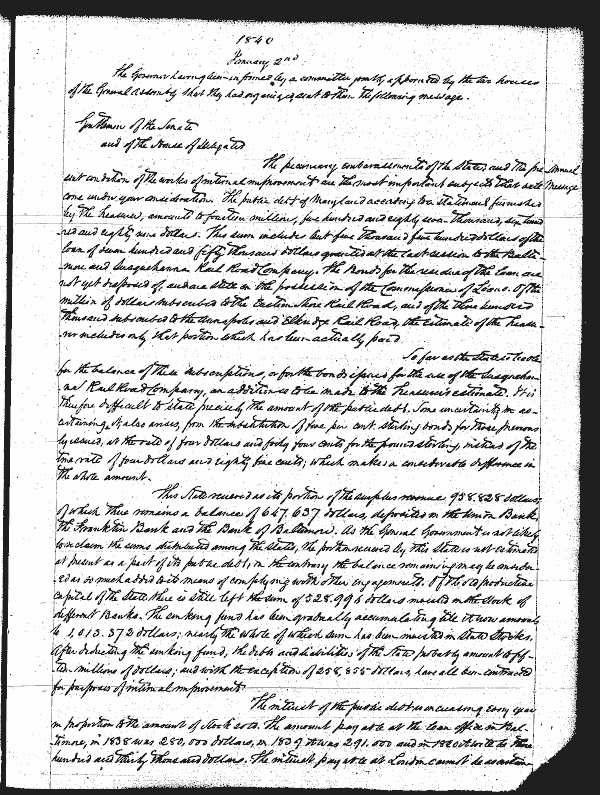 1840
January 2nd
The Governor having been informed by a committee jointly appointed by the two houses
of the General Assembly that they had organized, sent to them the following message.
Gentlemen of the Senate
and of the House of Delegates
The pecuniary embarrassments of the State, and the pre- Annual
sent condition of the works of internal improvement are the most important subjects that will Message
come under your consideration. The public debt of Maryland according to a statement furnished
by the Treasurer, amounts to fourteen millions, five hundred and eighty seven thousand, six hund
red and eighty nine dollars. This sum includes but five thousand five hundred dollars of the
loan of seven hundred and fifty thousand dollars granted at the last session to the Balti-
more and Susquehanna Rail Road Company. The bonds for the residue of the loan are
not yet disposed of, and are still in the possession of the Commissioner of Loans. Of the
million of dollars subscribed to the Eastern Shore Rail Road, and of the three hundred
thousand subscribed to the Annapolis and Elkridge Rail Road, the estimate of the Treasu-
rer includes only that portion which has been actually paid.
So far as the State is liable
for the balance of these subscriptions, or for the bonds issued for the use of the Susquehan-
na Rail Road Company, an addition is to be made to the Treasurer's estimate. It is
therefore difficult to state precisely the amount of the public debt. Some uncertainty in as-
certaining it also arises, from the substitution of five per cent. sterling bonds for those previous
ly issued, at the rate of four dollars and forty four cents for the pound sterling, instead of the
true rate of four dollars and eighty five cents; which makes a considerable difference in
the whole amount.
This State received as its portion of the surplus revenue 958.828 dollars,
of which there remains a balance of 647.637 dollars, deposited in the Union Bank,
the Franklin Bank and the Bank of Baltimore. As the General Government is not likely
to reclaim the sums distributed among the States, the portion received by this State is not estimated
at present as a part of its public debt; on the contrary the balance remaining may be consider-
ed as so much added to its means of complying with other engagements. Of the old productive
capital of the State there is still left the sum of 528.996 dollars invested in the stock of
different Banks. The sinking fund has been gradually accumulating till it now amounts
to 1,013.372 dollars; nearly the whole of which sum has been invested in State Stocks.
After deducting the sinking fund, the debts and liabilities of the State probably amount to fif-
teen millions of dollars; and with the exception of 258,835 dollars, have all been contracted
for purposes of internal improvement.
The interest of the public debt is increasing every year
in proportion to the amount of stock sold. The amount payable at the loan office in Bal-
timore, in 1838 was 280,000 dollars, in 1839 it was 291.000 and in 1840 it will be three
hundred and thirty thousand dollars. The interest payable at London cannot be ascertain-